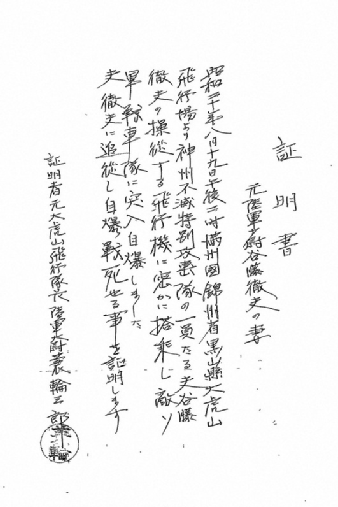 証明書
元陸軍少尉谷藤徹夫の妻
昭和二十年八月十九日午後二時満州国錦州省黒山県大虎山
飛行場より神州不滅特別攻撃隊の一員たる夫谷藤
徹夫の操従する飛行機に密かに搭乗し敵ソ
軍戦車隊に突入自爆しました
夫徹夫に追従し自爆戦死せる事を証明します
証明者元大虎山飛行隊長陸軍大尉蓑輪三郎